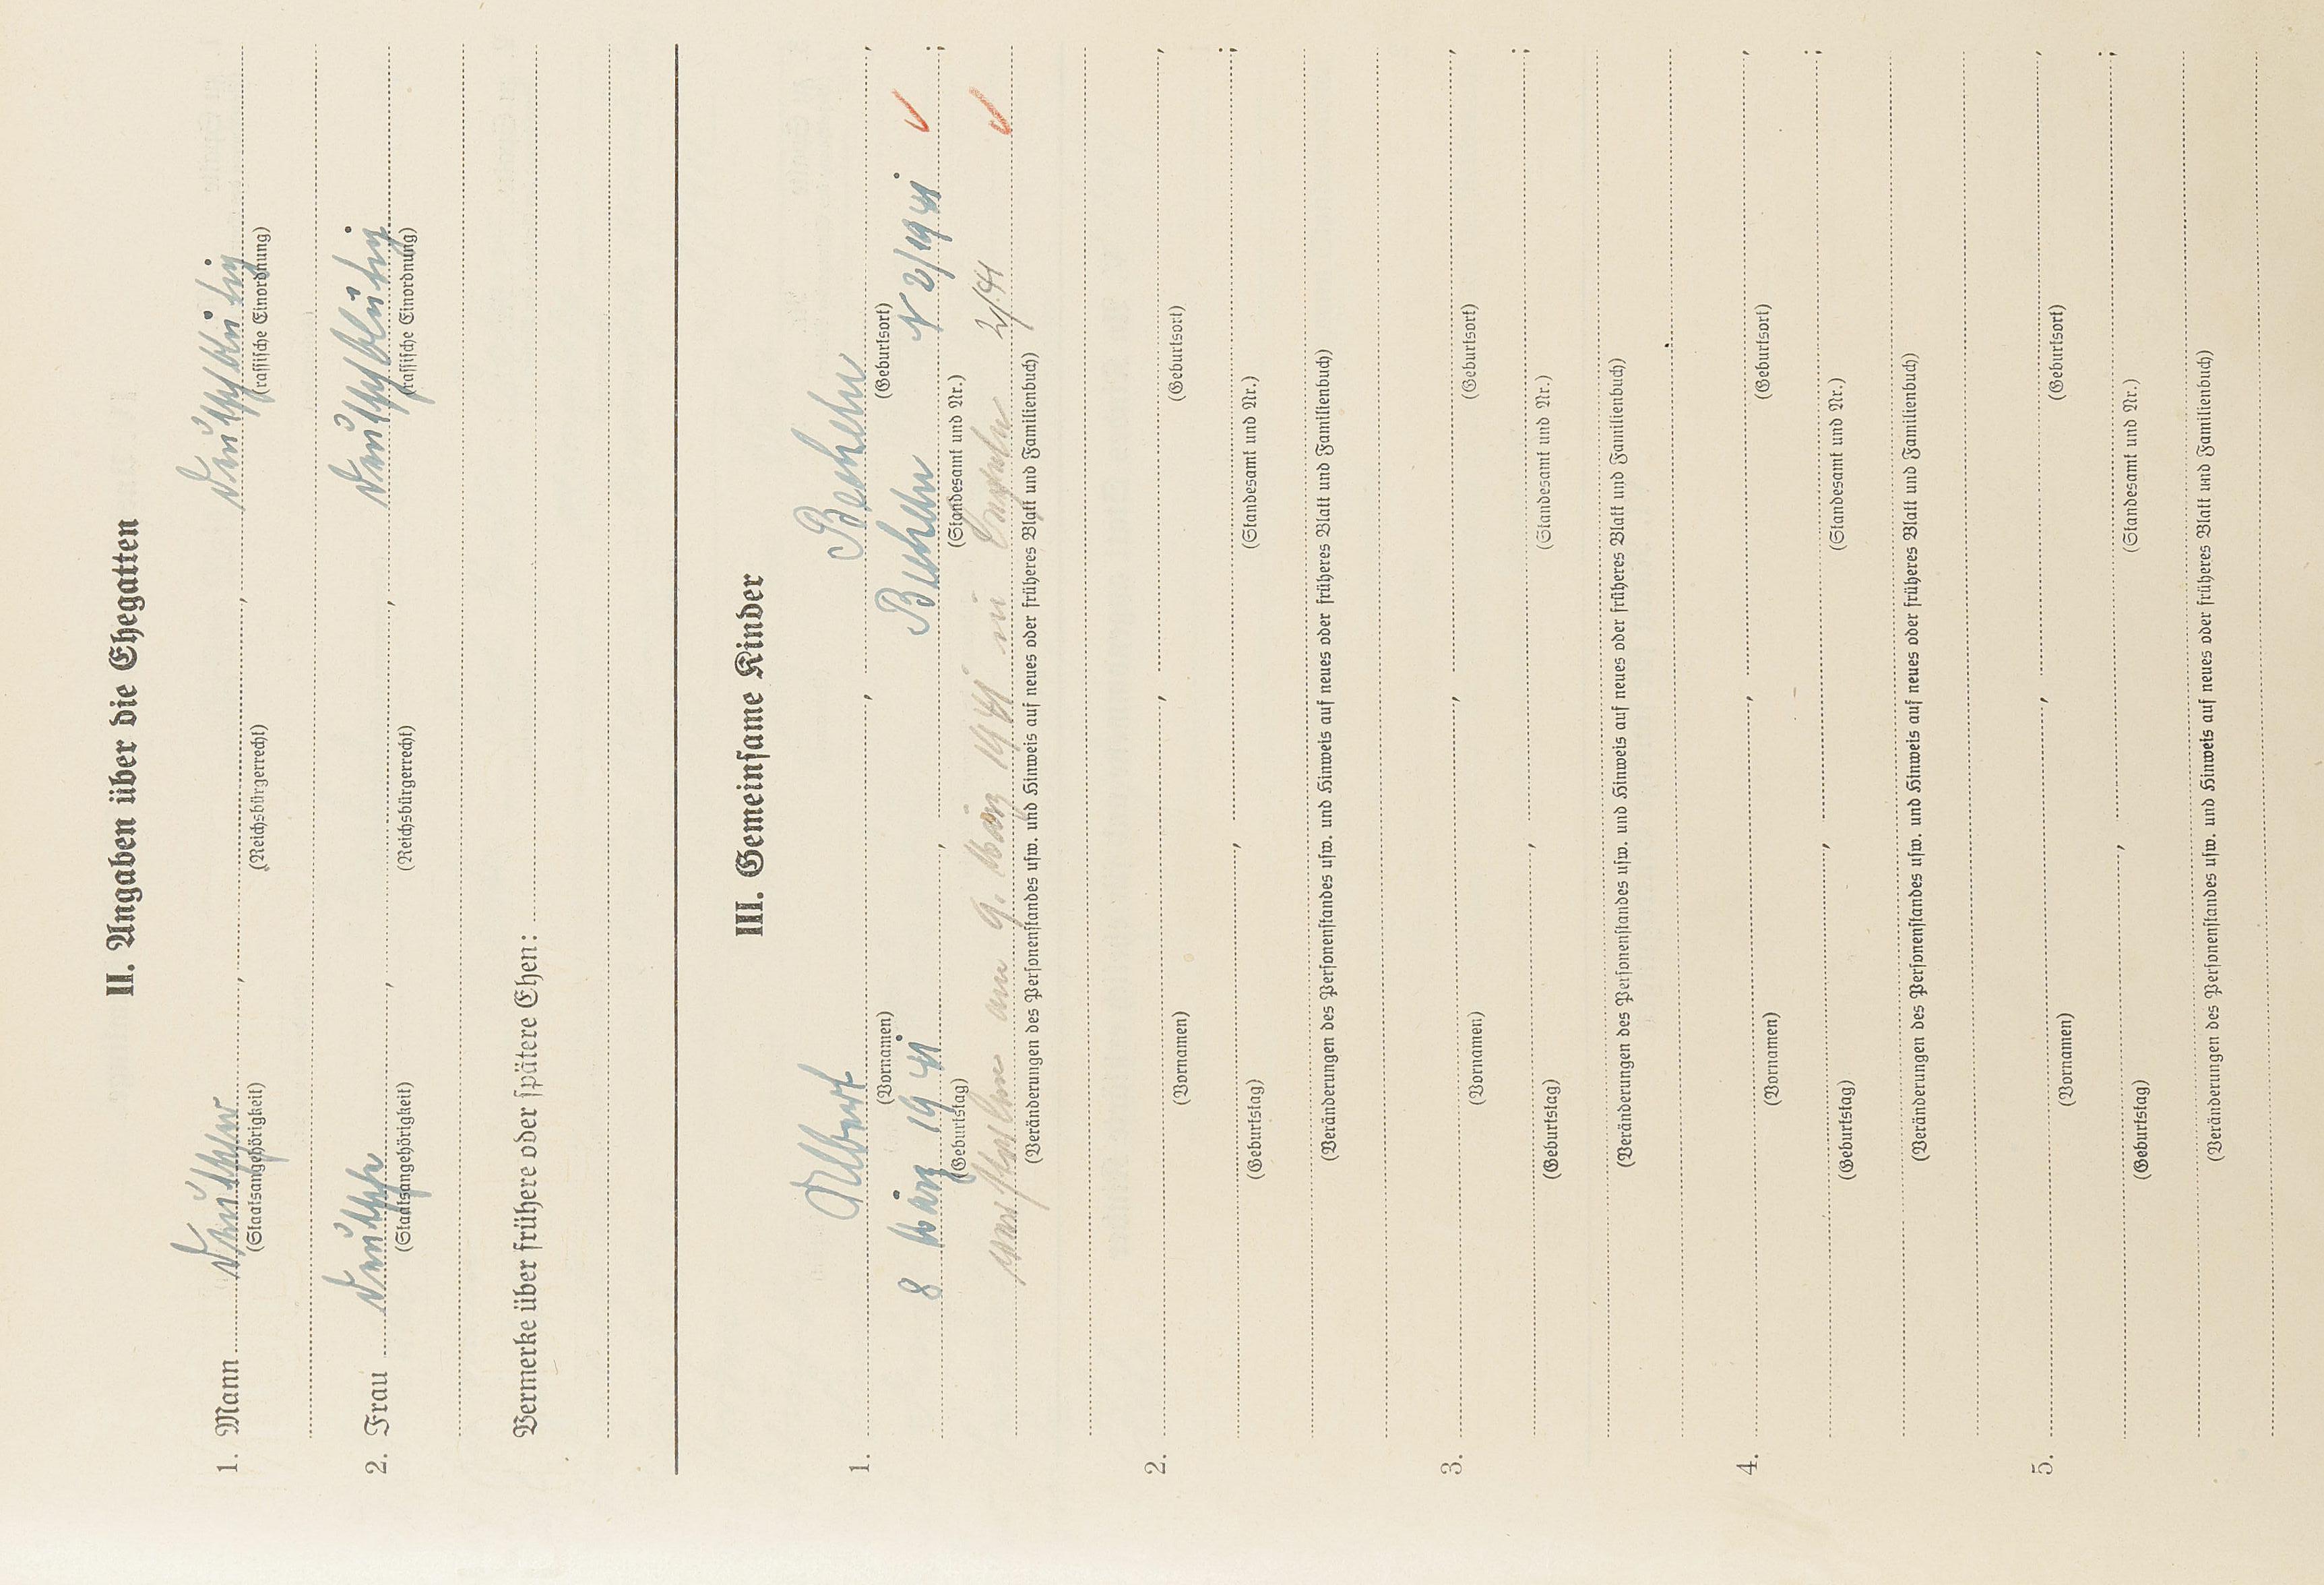 II. Angaben über die Ehegatten
1. Mann Deutscher, , deutschblütig
(Staatsangehörigkeit) (Reichsbürgerrecht) (rassische Einordnung)
2. Frau Deutsche, , deutschblütig
(Staatsangehörigkeit) (Reichsbürgerrecht) (rassische Einordnung)
Vermerke über frühere oder spätere Ehen:
III. Gemeinsame Kinder
1. Albert, ,
(Vornamen) (Geburtsort)
8 März 1941, N 2/1941 ;
(Geburtstag) (Standesamt und Nr.)
verstorben am 9. März 1941 in 2/41
(Veränderungen des Personenstandes usw. und Hinweis auf neues oder früheres Blatt und Familienbuch)
2. , ,
(Vornamen) (Geburtsort)
, ;
(Geburtstag) (Standesamt und Nr.)
(Veränderungen des Personenstandes usw. und Hinweis auf neues oder früheres Blatt und Familienbuch)
3. , ,
(Vornamen) (Geburtsort)
, ;
(Geburtstag) (Standesamt und Nr.)
(Veränderungen des Personenstandes usw. und Hinweis auf neues oder früheres Blatt und Familienbuch)
4. , ,
(Vornamen) (Geburtsort)
, ;
(Geburtstag) (Standesamt und Nr.)
(Veränderungen des Personenstandes usw. und Hinweis auf neues oder früheres Blatt und Familienbuch)
5. , ,
(Vornamen) (Geburtsort)
, ;
(Geburtstag) (Standesamt und Nr.)
(Veränderungen des Personenstandes usw. und Hinweis auf neues oder früheres Blatt und Familienbuch)